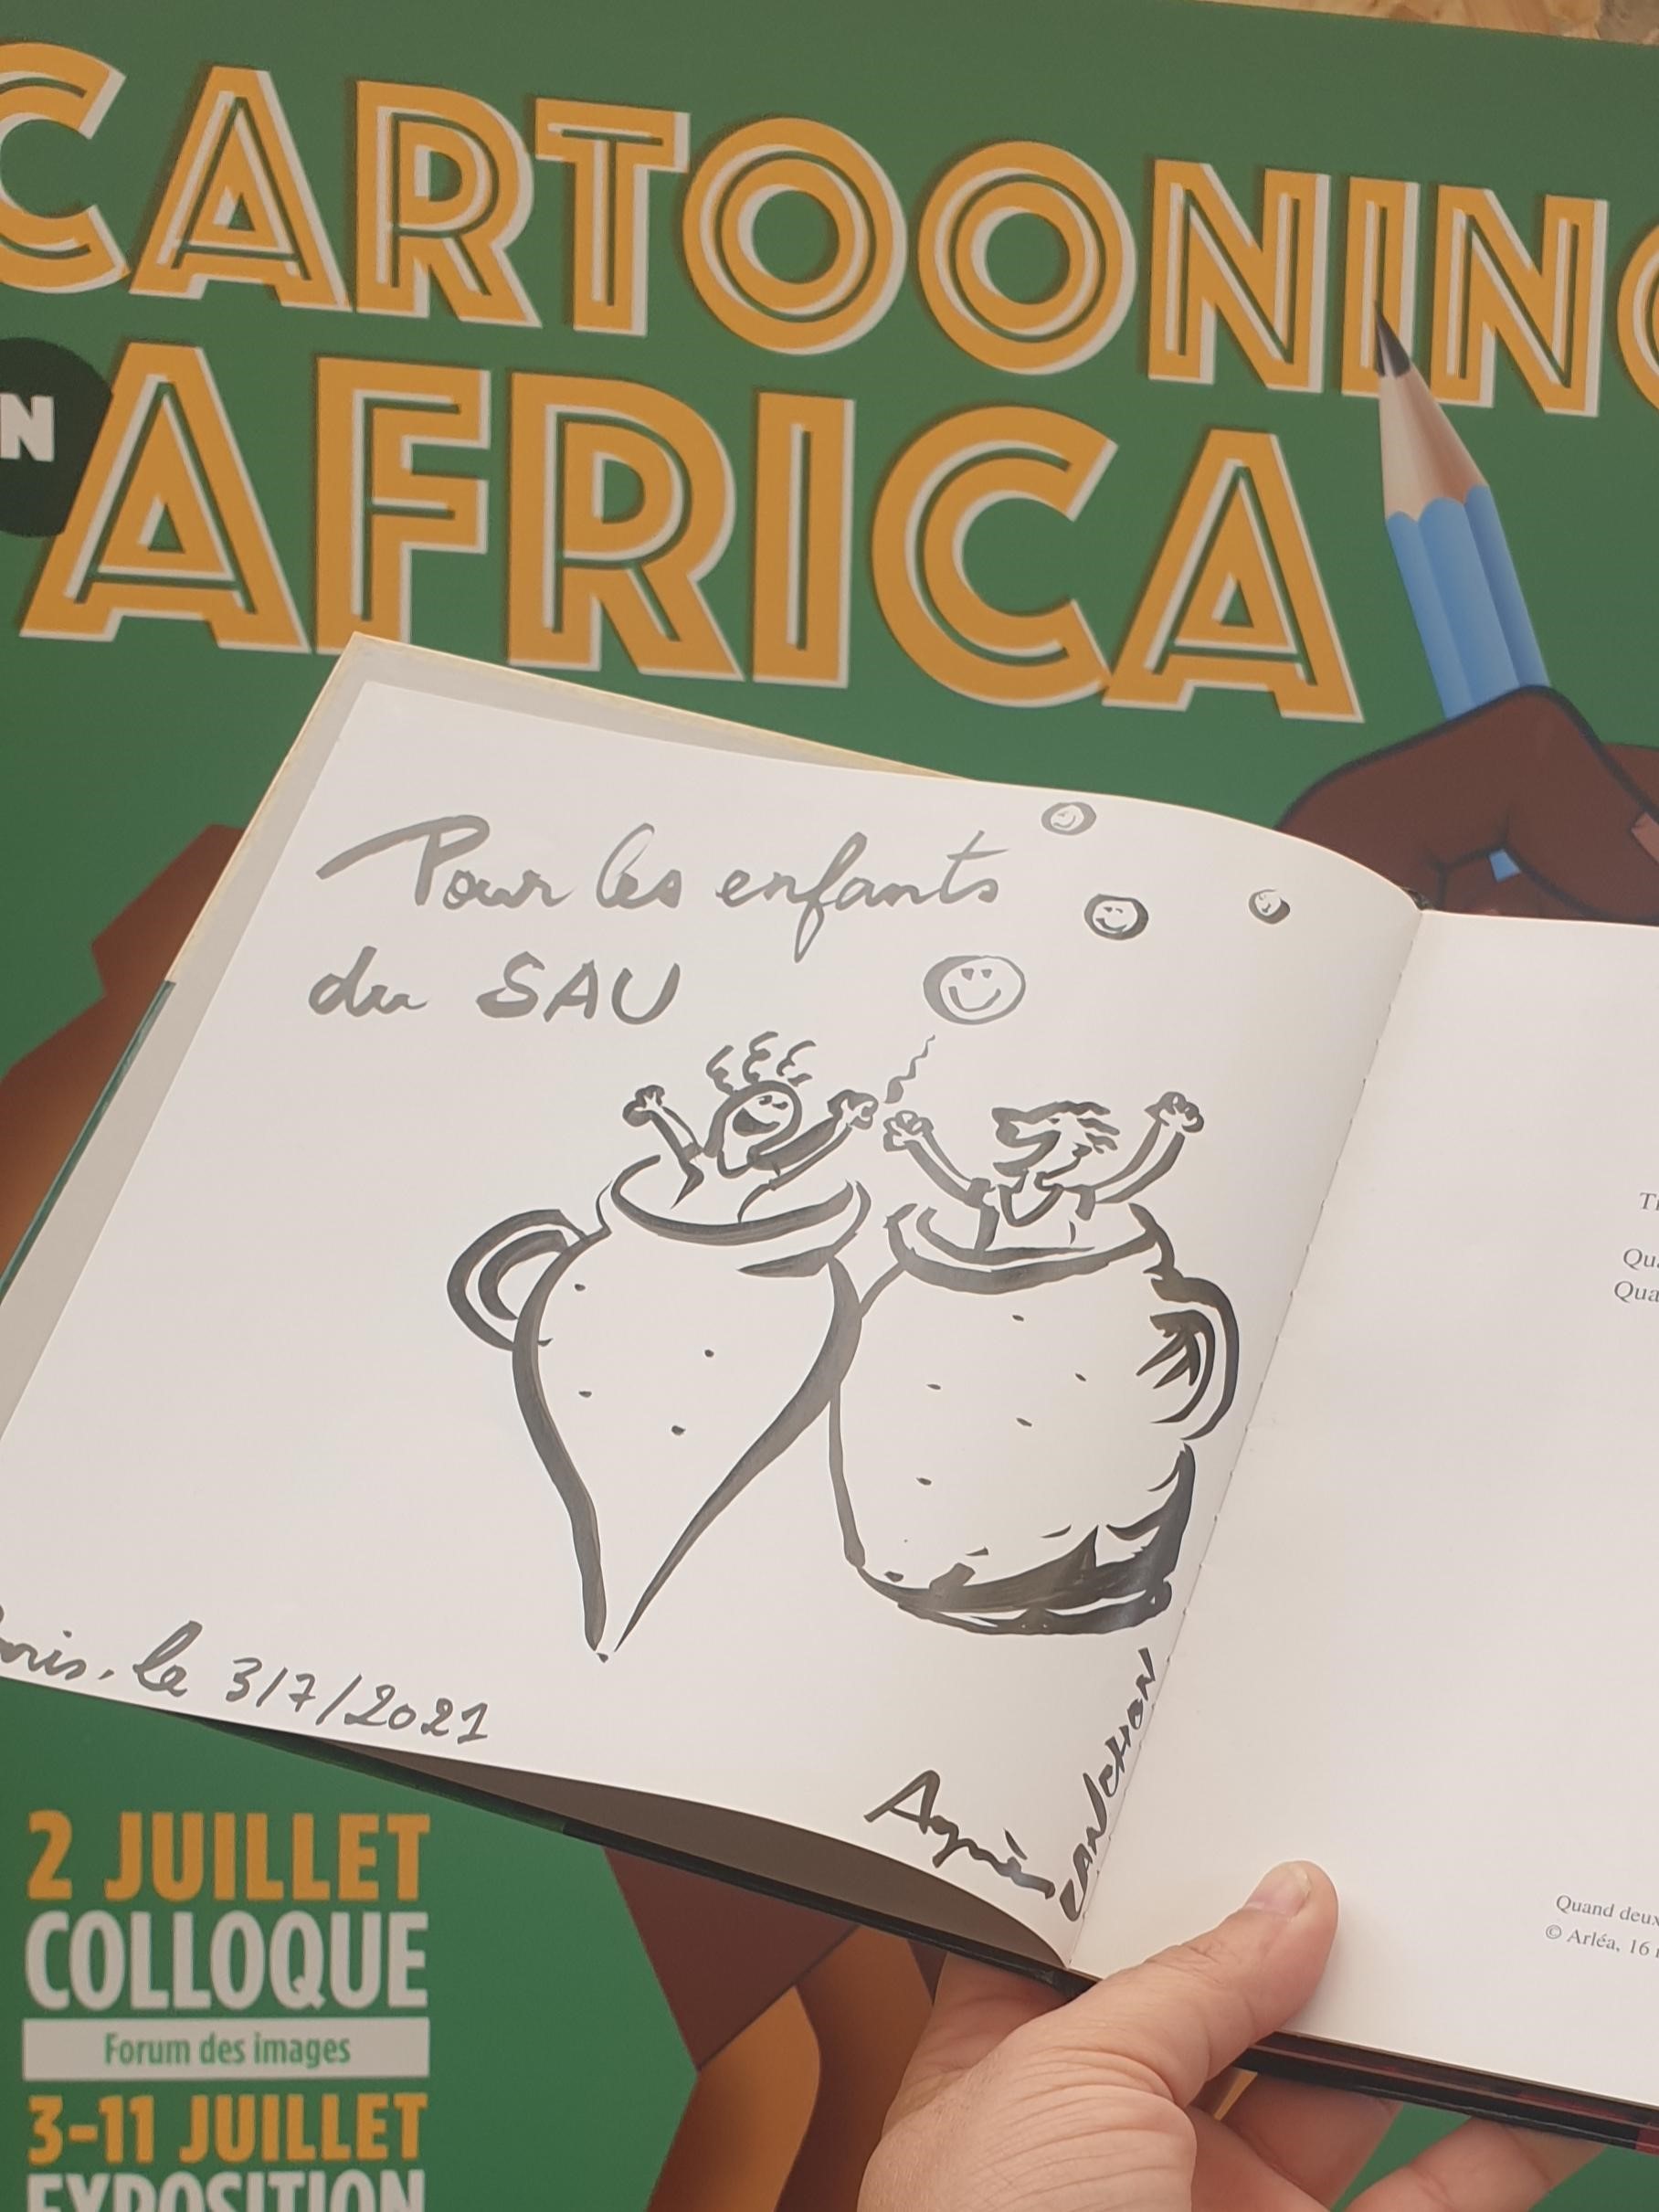 CARTOONING
IN
AFRICA
Pour les enfants
du SAU
Paris, le 3/7/2021
Agnès
LANCHON
Quand deux
© Arléa, 16
2 JUILLET
COLLOQUE
Forum des images
3-11 JUILLET
EXPOSITION